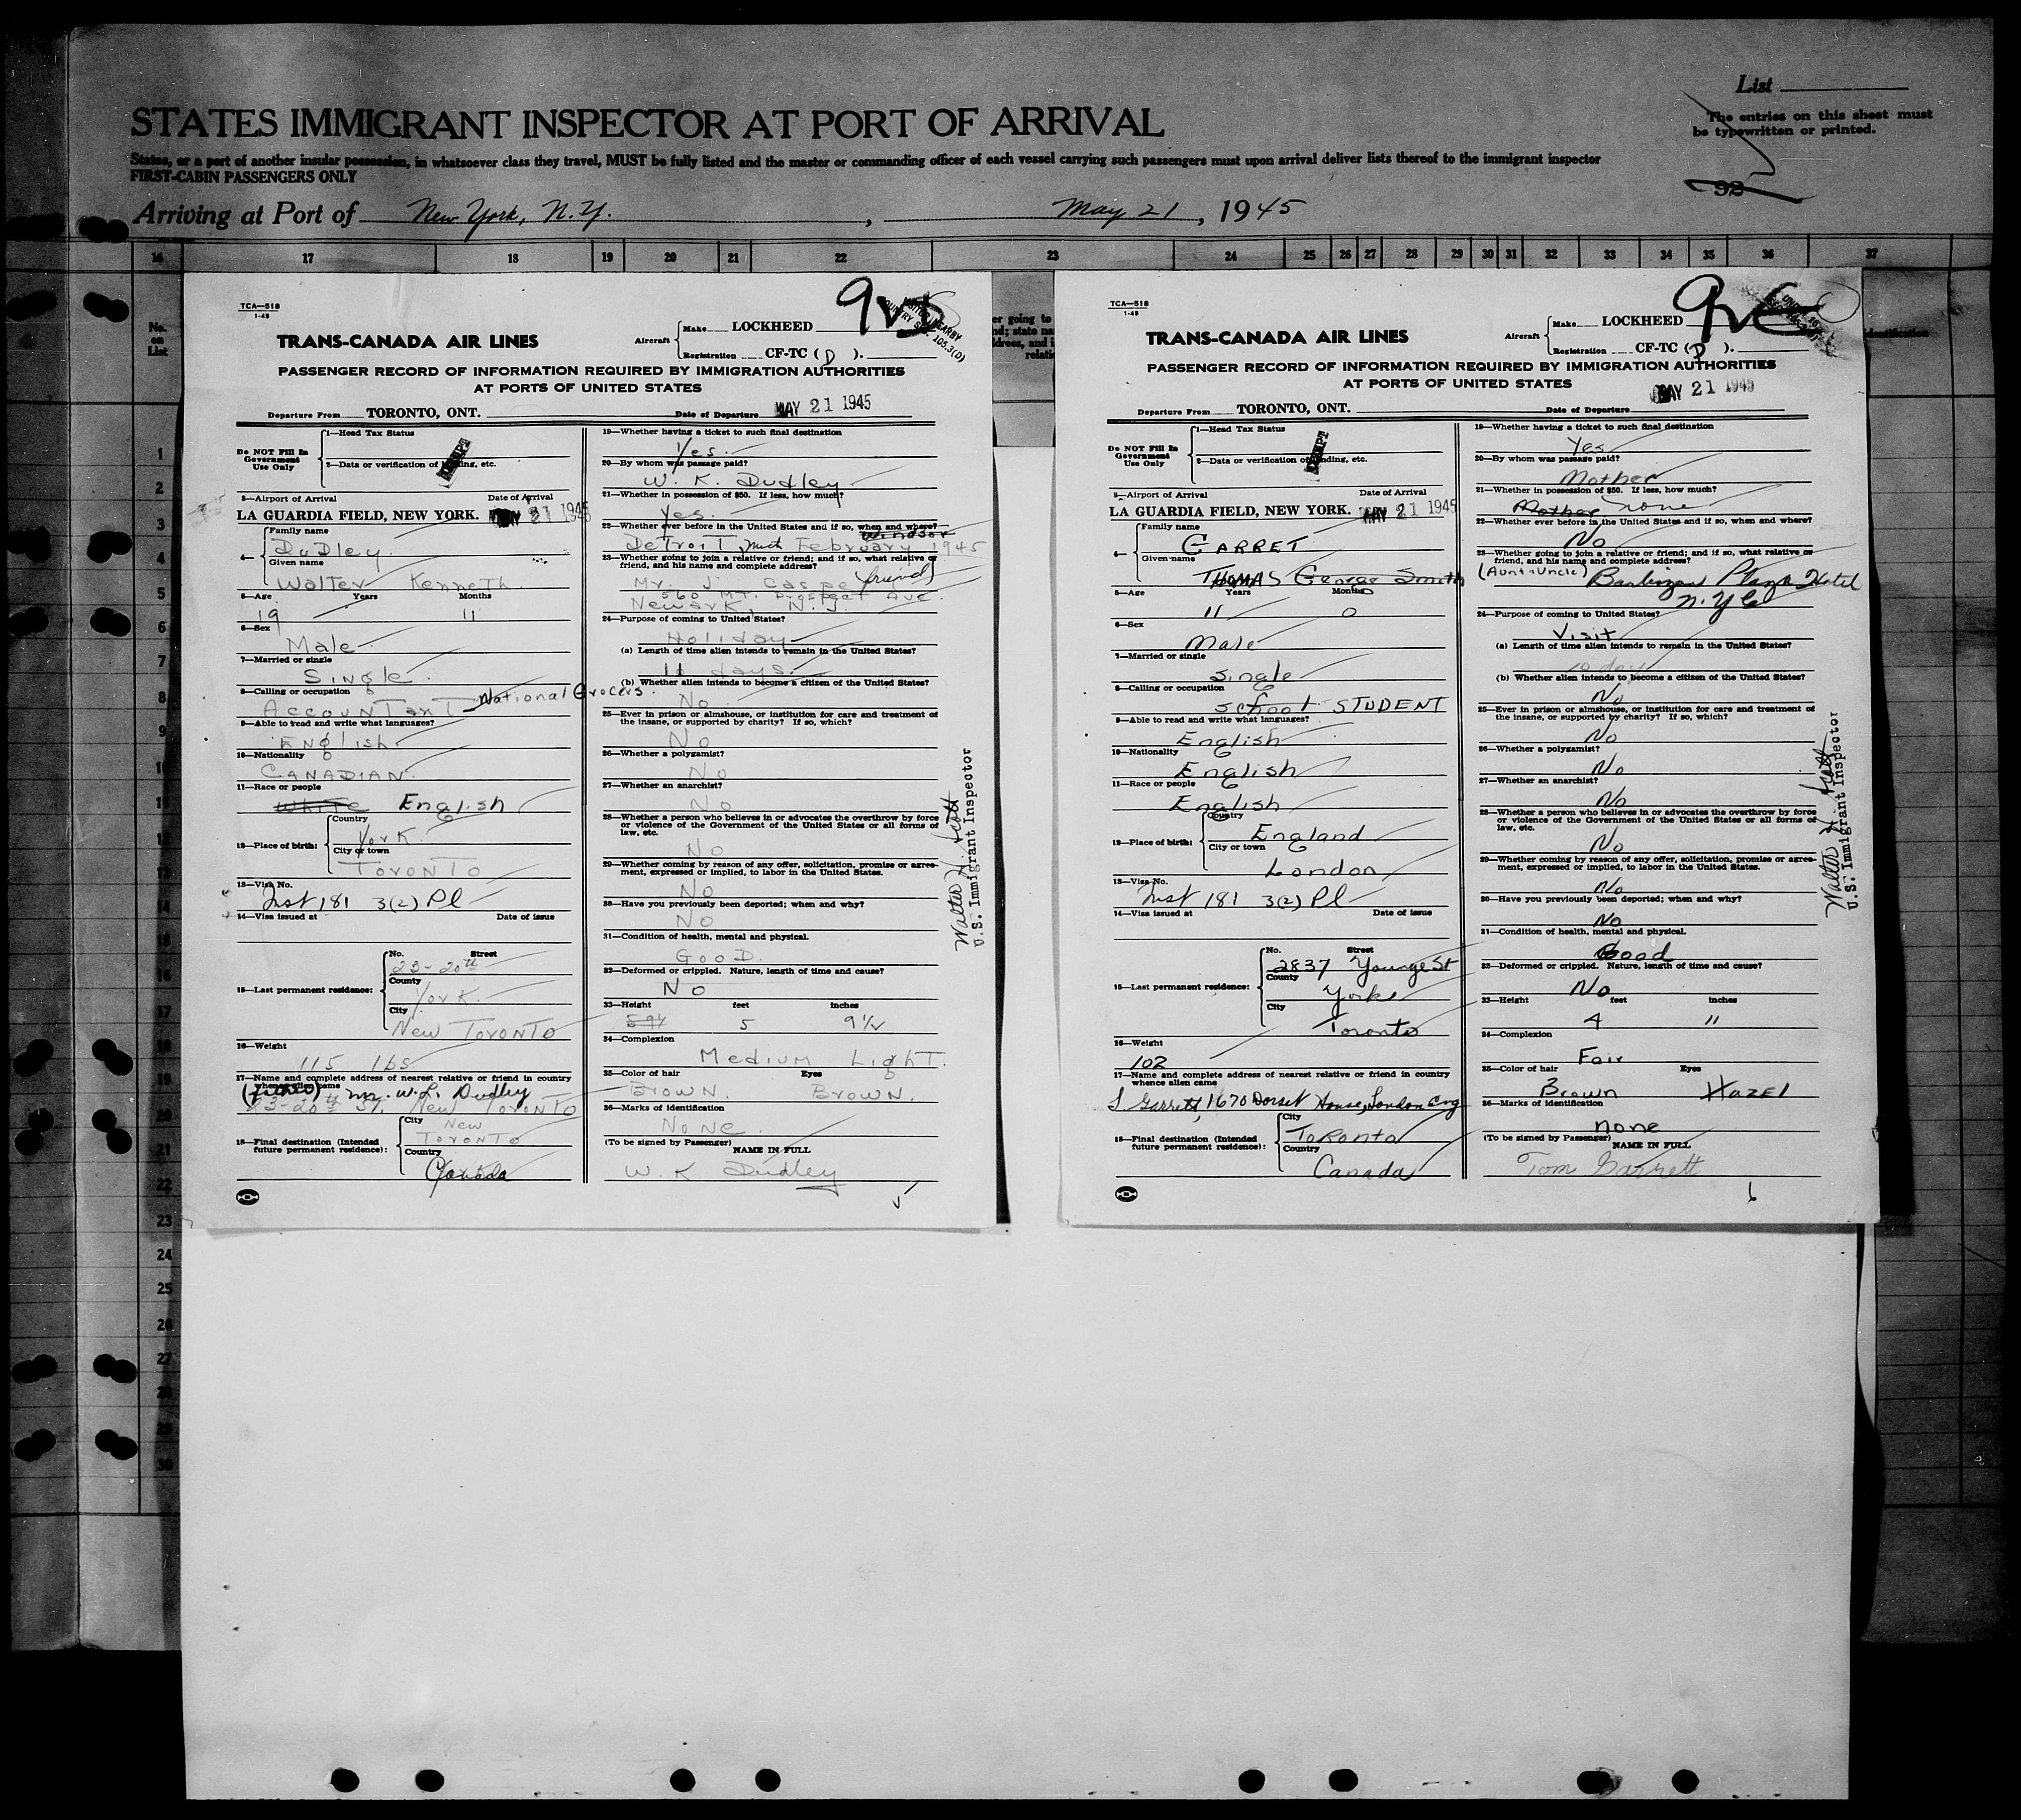 List
The entries on this sheet must
be typewritten or printed.
STATES IMMIGRANT INSPECTOR AT PORT OF ARRIVAL
States, or a port of another insular possession, in whatsoever class they travel, MUST be fully listed and the master or commanding officer of each vessel carrying such passengers must upon arrival deliver lists thereof to the immigrant inspector
FIRST-CABIN PASSENGERS ONLY
98
Arriving at Port of New York, N.Y., May 21, 1945
16 17 18 19 20 21 22 23 24 25 26 27 28 29 30 31 32 33 34 35 36 37
No.
on
List
TCA—518
1-45
Make LOCKHEED
TRANS-CANADA AIR LINES
Aircraft
Registration CF-TC ( D ).
PASSENGER RECORD OF INFORMATION REQUIRED BY IMMIGRATION AUTHORITIES
AT PORTS OF UNITED STATES
Departure From TORONTO, ONT. Date of Departure MAY 21 1945
Do NOT Fill In
Government
Use Only
1—Head Tax Status
2—Data or verification of landing, etc.
3—Airport of Arrival Date of Arrival
LA GUARDIA FIELD, NEW YORK. MAY 21 1945
4—
Family name
Dudley
Given name
Walter Kenneth
5—Age Years Months
19 11
6—Sex
Male
7—Married or single
Single
8—Calling or occupation
Accountant National Grocers.
9—Able to read and write what languages?
English
10—Nationality
CANADIAN.
11—Race or people
White English
12—Place of birth:
Country
York
City or town
Toronto
13—Visa No.
Inst 181 3(2) Pl
14—Visa issued at Date of issue
15—Last permanent residence:
No. Street
23-20th
County
York.
City
New Toronto
16—Weight
115 lbs.
17—Name and complete address of nearest relative or friend in country
whence alien came
(father) Mr. W.L. Dudley
23-20th St. New Toronto
18—Final destination (Intended
future permanent residence):
City New
Toronto
Country
Canada
19—Whether having a ticket to such final destination
Yes.
20—By whom was passage paid?
W. K. Dudley
21—Whether in possession of $50. If less, how much?
Yes.
22—Whether ever before in the United States and if so, when and where?
Windsor
Detroit Mich February 1945
23—Whether going to join a relative or friend; and if so, what relative or
friend, and his name and complete address?
Mr. J. (friend)
560 Mt. Prospect Ave.
Newark, N.J.
24—Purpose of coming to United States?
Holiday
(a) Length of time alien intends to remain in the United States?
days.
(b) Whether alien intends to become a citizen of the United States?
No
25—Ever in prison or almshouse, or institution for care and treatment of
the insane, or supported by charity? If so, which?
No
26—Whether a polygamist?
No
27—Whether an anarchist?
No
28—Whether a person who believes in or advocates the overthrow by force
or violence of the Government of the United States or all forms of
law, etc.
No
29—Whether coming by reason of any offer, solicitation, promise or agree-
ment, expressed or implied, to labor in the United States.
No
30—Have you previously been deported; when and why?
No
31—Condition of health, mental and physical.
Good.
32—Deformed or crippled. Nature, length of time and cause?
No
33—Height feet inches
5 9½
34—Complexion
Medium Light.
35—Color of hair Eyes
Brown. Brown.
36—Marks of identification
None.
(To be signed by Passenger) NAME IN FULL
W. K. Dudley
Walter H. Scott
U.S. Immigrant Inspector
TCA—518
1-45
Make LOCKHEED
TRANS-CANADA AIR LINES
Aircraft
Registration CF-TC ( D ).
PASSENGER RECORD OF INFORMATION REQUIRED BY IMMIGRATION AUTHORITIES
AT PORTS OF UNITED STATES
Departure From TORONTO, ONT. Date of Departure MAY 21 1945
Do NOT Fill In
Government
Use Only
1—Head Tax Status
2—Data or verification of landing, etc.
3—Airport of Arrival Date of Arrival
LA GUARDIA FIELD, NEW YORK. MAY 21 1945
4—
Family name
GARRET
Given name
THOMAS George Smith
5—Age Years Months
11 0
6—Sex
Male
7—Married or single
Single
8—Calling or occupation
School STUDENT
9—Able to read and write what languages?
English
10—Nationality
English
11—Race or people
English
12—Place of birth:
Country
England
City or town
London
13—Visa No.
Inst 181 3(2) Pl
14—Visa issued at Date of issue
15—Last permanent residence:
No. Street
2837 Younge St
County
Yorke
City
Toronto
16—Weight
102
17—Name and complete address of nearest relative or friend in country
whence alien came
Garrett, 1670 Dorset House, London Eng
18—Final destination (Intended
future permanent residence):
City
Toronto
Country
Canada
19—Whether having a ticket to such final destination
Yes
20—By whom was passage paid?
Mother
21—Whether in possession of $50. If less, how much?
Mother none
22—Whether ever before in the United States and if so, when and where?
No
23—Whether going to join a relative or friend; and if so, what relative or
friend, and his name and complete address?
(Aunt & Uncle) Barbizon Plaza Hotel
N.Y.C.
24—Purpose of coming to United States?
Visit
(a) Length of time alien intends to remain in the United States?
10 days
(b) Whether alien intends to become a citizen of the United States?
No
25—Ever in prison or almshouse, or institution for care and treatment of
the insane, or supported by charity? If so, which?
No
26—Whether a polygamist?
No
27—Whether an anarchist?
No
28—Whether a person who believes in or advocates the overthrow by force
or violence of the Government of the United States or all forms of
law, etc.
No
29—Whether coming by reason of any offer, solicitation, promise or agree-
ment, expressed or implied, to labor in the United States.
No
30—Have you previously been deported; when and why?
No
31—Condition of health, mental and physical.
Good
32—Deformed or crippled. Nature, length of time and cause?
No
33—Height feet inches
4 11
34—Complexion
Fair
35—Color of hair Eyes
Brown Hazel
36—Marks of identification
none
(To be signed by Passenger) NAME IN FULL
Tom Garrett
6
Walter H. Scott
U.S. Immigrant Inspector
1
2
3
4
5
6
7
8
9
10
11
12
13
14
15
16
17
18
19
20
21
22
23
24
25
26
27
28
29
30